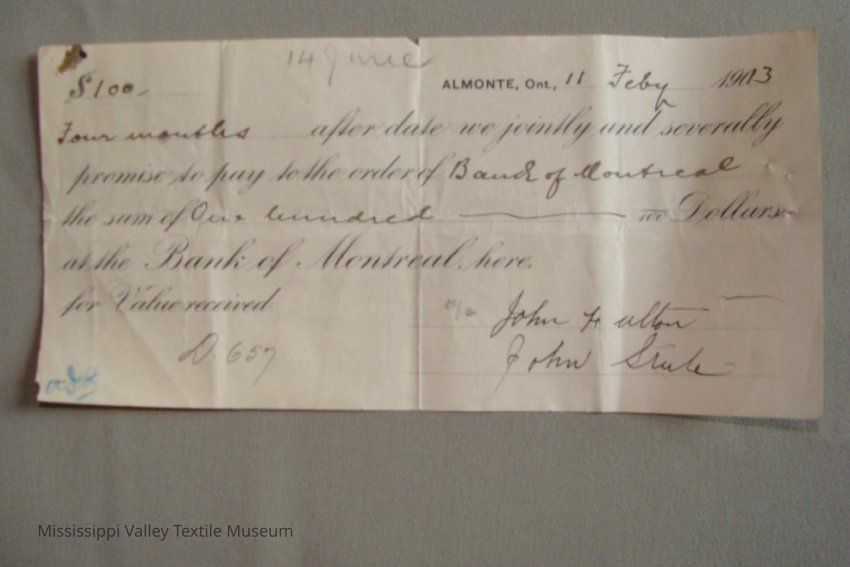 14 June
$100.- ALMONTE, Ont., 11 Feby 1903
Four months after date we jointly and severally
promise to pay to the order of Bank of Montreal
the sum of One hundred xx/100 Dollars
at the Bank of Montreal, here.
for Value received
John Fulton
D. 657
John
Mississippi Valley Textile Museum